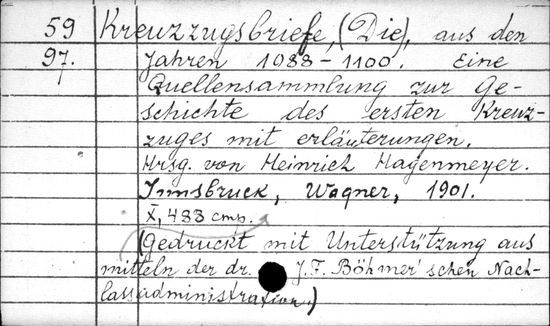 59 Kreuzzugsbriefe, (Die), aus den
97. Jahren 1088-1100. Eine
Quellensammlung zur Ge-
schichte des ersten Kreuz-
zuges mit erläuterungen.
Hrsg. von Heinrich Hagenmeyer.
Innsbruck, Wagner, 1901.
X, 488 стр.
(Gedruckt mit Unterstützung aus
mitteln der dr. J.F. Böhmer'schen Nach-
lassadministration.)